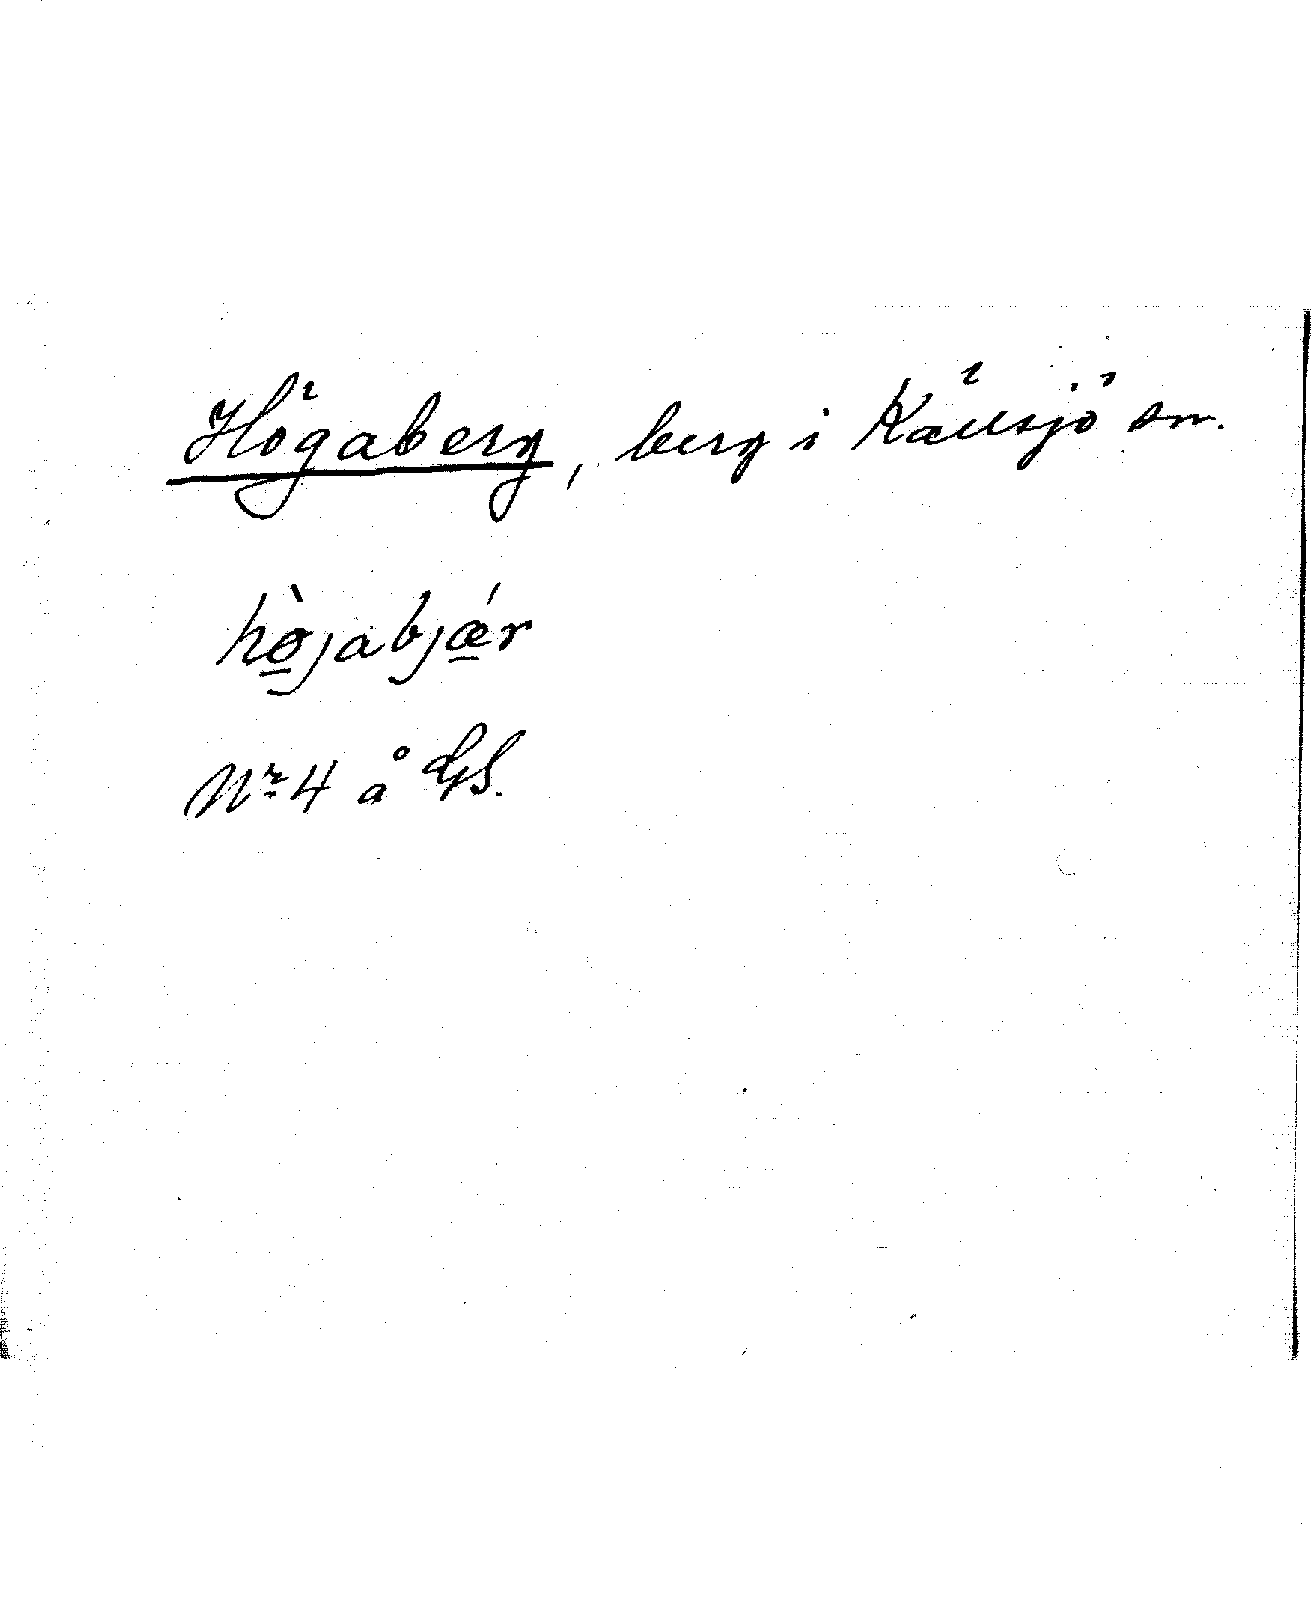 Högaberg, berg i Källsjö sn.
hø̀jabjǽr
Nr 4 å GS.